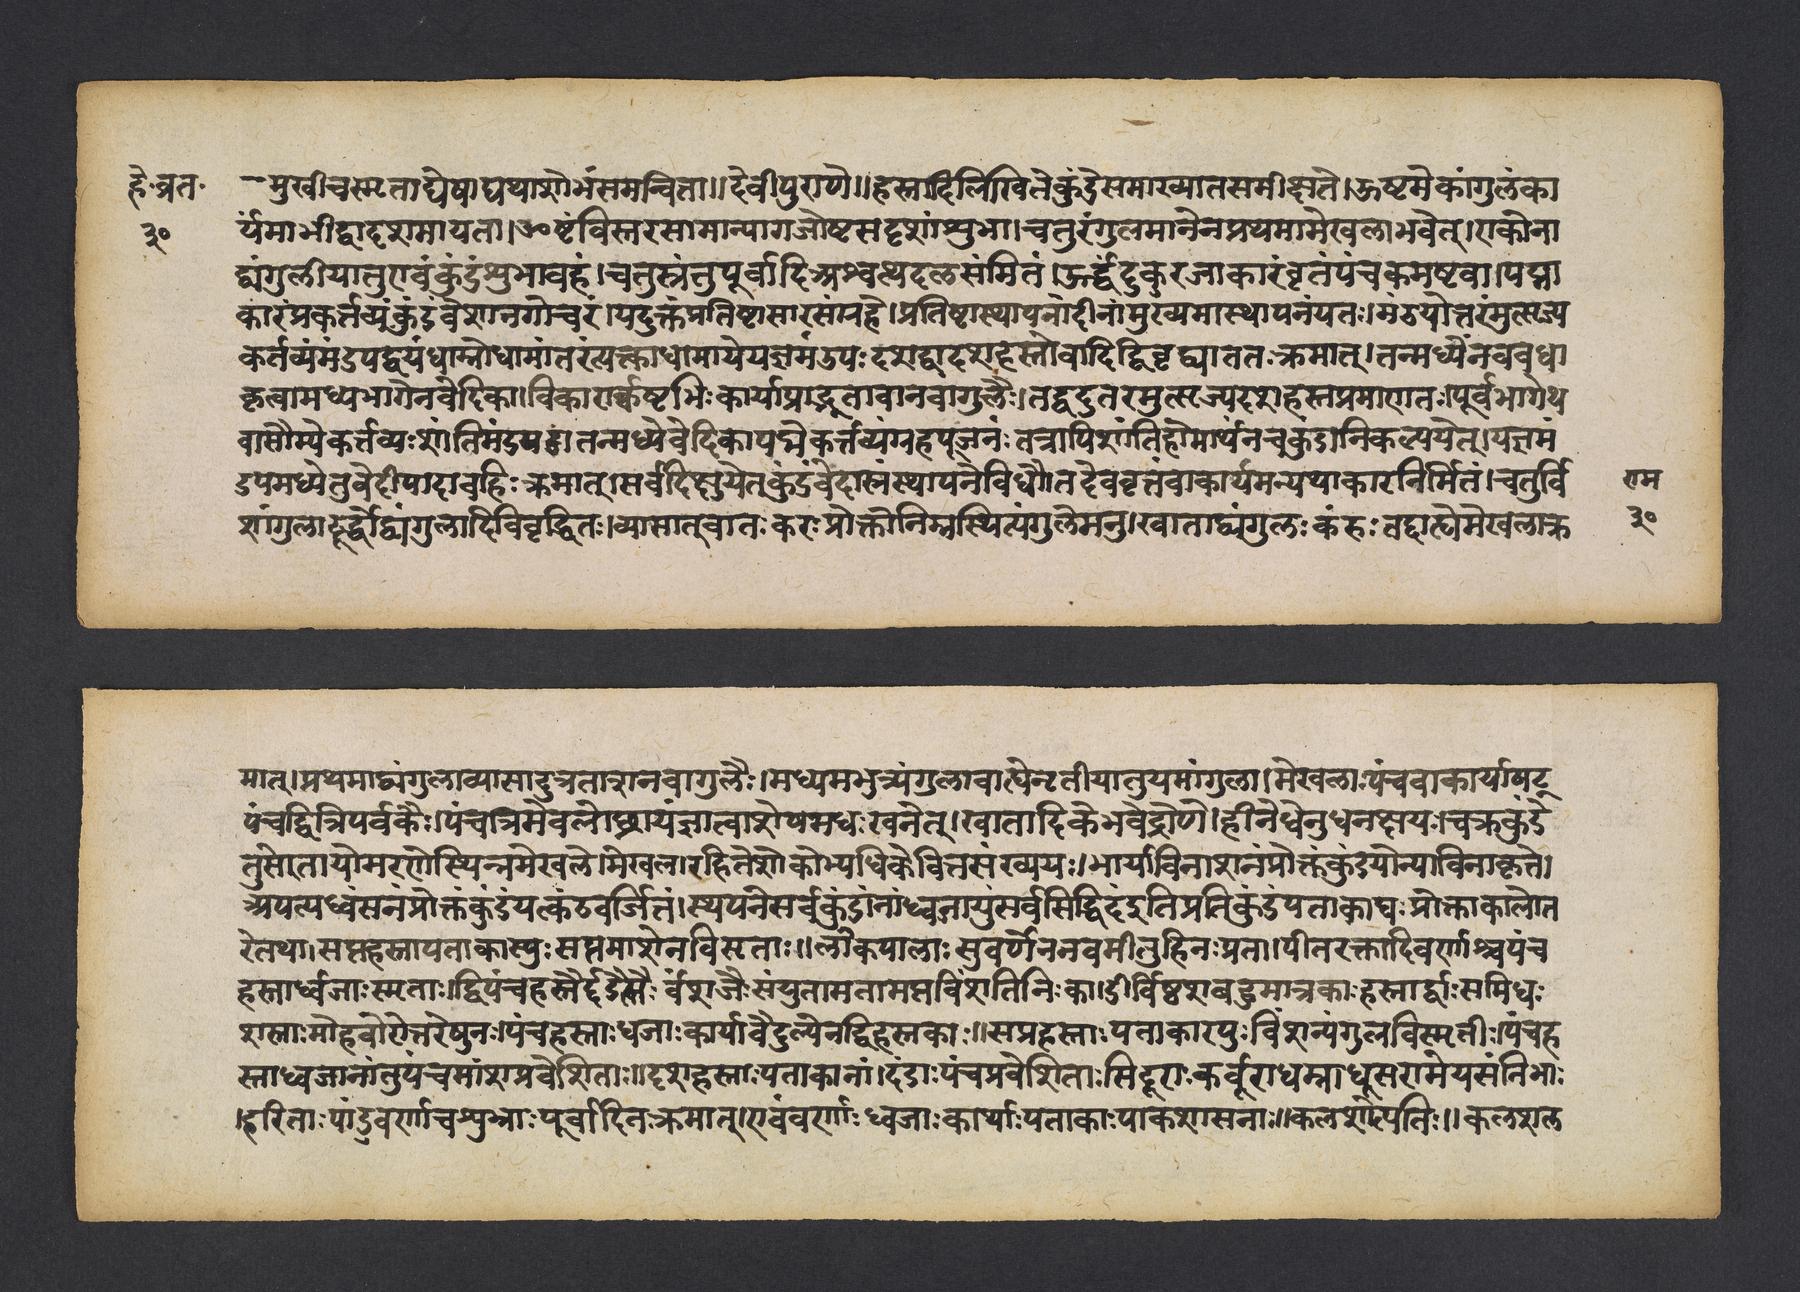 हे॰व्रत॰
३०
मुखीचस्मृताद्येषाद्यथाशोभंसमन्विता॥देवीपुराणे॥हस्तादिलिखितेकुंडेसमाख्यातसमीक्षते।ऊष्टमेकांगुलंका
र्यंमाभीद्वादशमायता।ॐष्टंविस्तरसामान्यागजोष्टसदृशांशुभा।चतुरंगुलमानेनप्रथमामेखलाभवेत्।एकोना
द्व्यंगुलीयातुएवंकुंडंशुभावहं।चतुस्रंतुपूर्वादिअश्वत्थदलसंमितं।ऊर्द्ध्वेंदुकुरजाकारंवृतंपंचकमष्टवा।पद्मा
कारंप्रकर्त्तव्यंकुंडंवैशाननगोचरं।यदुक्तंप्रतिष्टासारसंग्रहे।प्रतिष्टास्थापनादीनांमुख्यमास्थापनंयतः।मंठयोत्तरंमुत्सृज्य
कर्तव्यंमंडपद्वयंधाम्नोधामांतरंत्यक्त्वाधामाग्रेयज्ञमंडपः दशद्वादशहस्तोवादिद्विवृद्ध्याततःक्रमात्।तन्मध्येनववधा
कृत्वामध्यभागेनवेदिका।विकारार्काष्टभिःकार्याप्राद्भूतावानवागुलैः।तद्वदुतरमुत्सृज्यदशहस्तप्रमाणतः।पूर्वभागेथ
वासौम्येकर्त्तव्यःशांतिमंडपः तन्मध्येवेदिकापद्मेकर्त्तव्यंग्रहपूजनंः तत्रापिशांतिहोमार्थंनचुकुंडानिकल्पयेत्।यज्ञमं
डपमध्येतुवेदीपादावहिःक्रमात्।सर्वदिक्षुयेत्कुंडंवेदास्रंस्थापनेविधौ।तदेववृत्तंवाकार्यमन्यथाकारनिर्मितं।चतुर्वि
शांगुलादूर्द्ध्वोद्व्यंगुलादिविवृद्धितः।व्यासात्खातःकरःप्रोक्तोनिम्नस्थित्यंगुलेमनु।खाताद्व्यंगुलःकंठःतद्दात्येमेखलाक्र
राम
३०
मात्।प्रथमाद्व्यंगुलाव्यासादुन्नतान्नानवागुलैः।मध्यमभुत्र्यंगुलाबात्येनतृतीयातुयमांगुला।मेखलापंचवाकार्याषट्
पंचद्वित्रिपर्वकैः।पंचत्रिमेवलोछ्रायंज्ञात्वाशेषमधःखनेत्।खातादिकेभवेद्रोणे।हीनेधेनुधनक्षयः।वक्रकुंडे
तुसोतायोमरणोस्यिन्नमेखले।मेखलारहितेशोकोभ्यधिकेवित्तसंख्ययः।भार्याविनाशनंप्रोक्तंकुंडंयोन्याविनाकृते।
अपत्यध्वंसनंप्रोक्तंकुंडंयत्कंठवर्जितं।स्थपनेसर्वकुंडांनांध्वजायुसर्वसिद्धिदंदुतिप्रतिकुंडंपताकाघःप्रोक्ताकालोत
रेतथा।सप्तहस्तापताकास्युःसप्तमाशेनविस्तृताः॥लोकपालाःसुवर्णेननवमीतुहिनःप्रता।पीतरक्तादिवर्णाश्चपंच
हस्ताध्वजाःस्मृताः।द्विपंचहस्तैर्द्दंडैस्तैः र्वंशजैःसंयुतामतामप्तविंशतिनिःका।
शस्ताःमोहवोरोत्तरेषुनः।पंचहस्ताःध्वजाःकार्यावैदुल्येनद्विहस्तकाः॥सप्तहस्ताःपताकारपुःविंशत्यंगुलविस्मृती।पंचह
स्ताध्वजानांतुपंचमांशप्रवेशिताः॥दशहस्ताःपताकानां।दंडाःपंचप्रवेशिताःसिदूराःकर्वूराधम्राधूसरामेयसंनिभाः
।हरिताःपांडुवर्णाचशुभ्राःपूर्वादितःक्रमात्।एवंवर्णाःध्वजाःकार्याःपताकाःपाकशासनाः॥कलशोत्पतिः॥कलशल